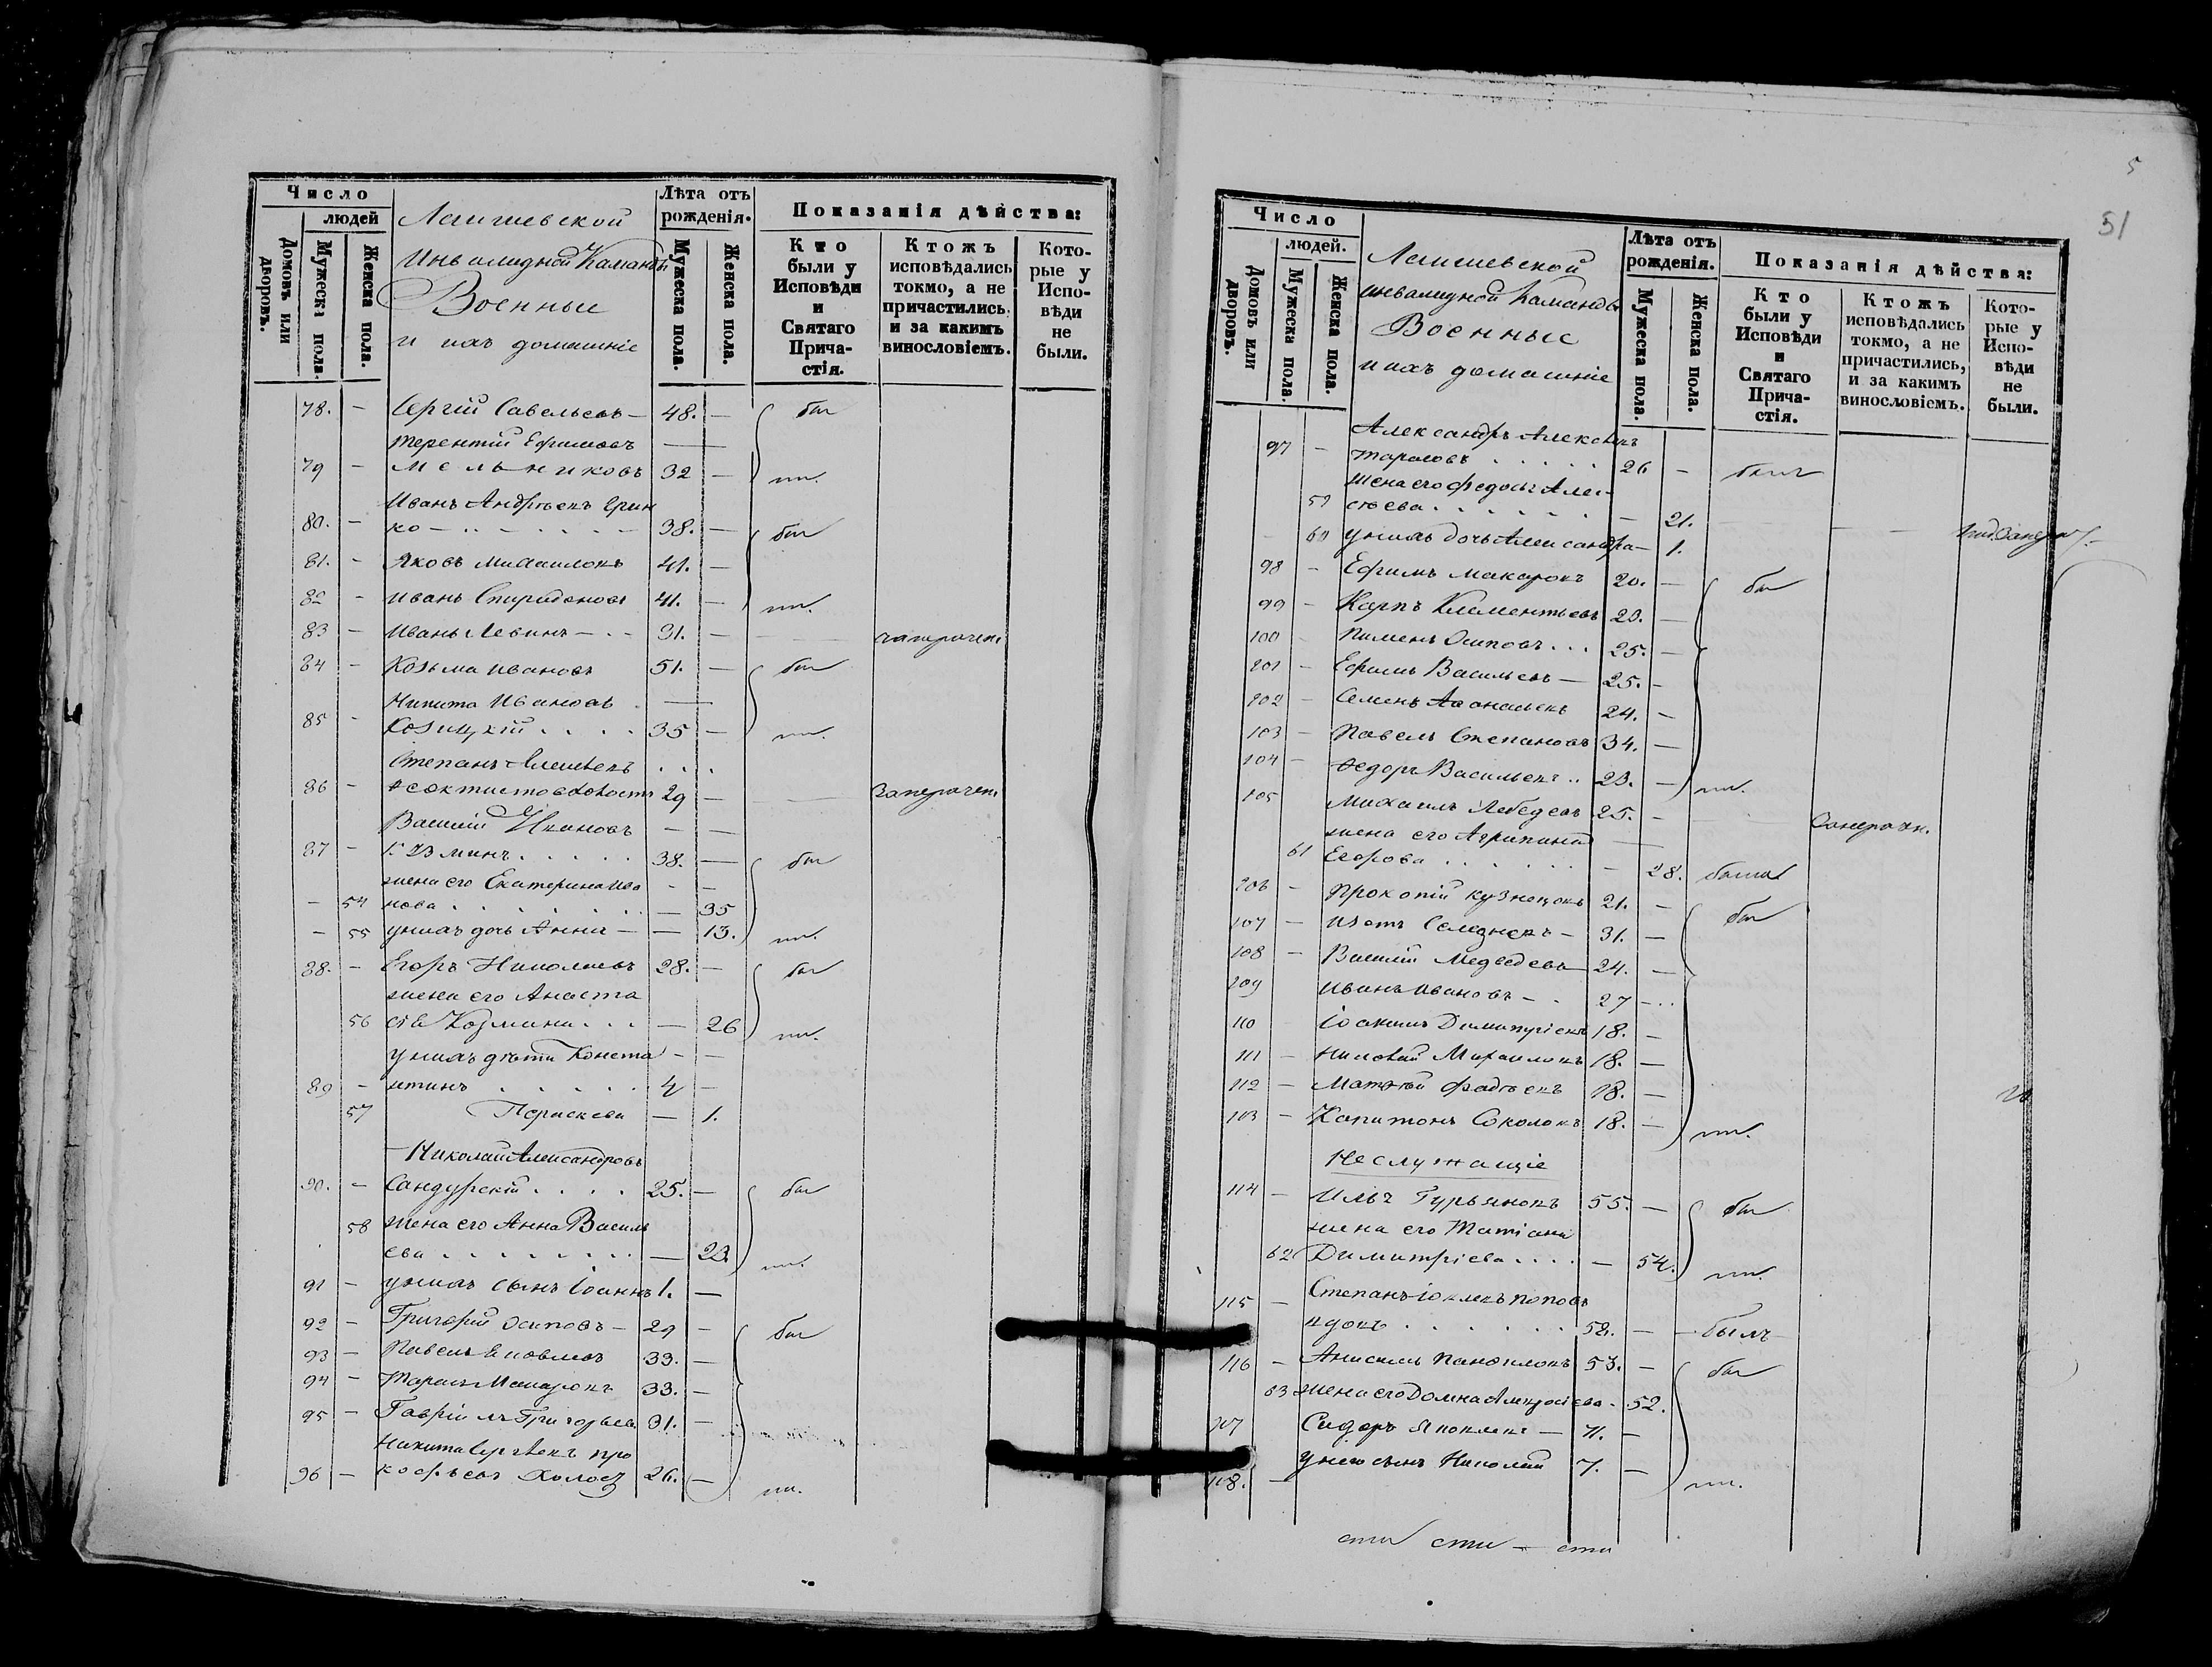 Число
людей
Домовъ или дворовъ.
Мужеска пола.
Женска пола.
Лаишевской
Инвалидной Команды
Военные
и ихъ домашніе
Лѣта отъ рожденія.
Мужеска пола.
Женска пола.
Показанія дѣйства:
Кто были у Исповѣди и Святаго Прича-стія.
Ктожъ исповѣдались токмо, а не причастились, и за какимъ винословіемъ.
Кото-рые у Испо-вѣди не были.
78. – Сергій Савельевъ – 48. – бы
Терентій Ефимовъ
79 – Мельниковъ 32 – ли.
Иванъ Андрѣевъ
80. – ко 38. – бы
81. – Яковъ Михаиловъ 41. –
82 – Иванъ Спиридоновъ 41. – ли.
83 – Иванъ Левинъ – 31. –
84 – Козьма Ивановъ 51. – бы
Никита Ивановъ
85 – Козицкій 35 – ли.
Степанъ Алексѣевъ
86 – 29 –
Василій Ивановъ
87 – Кузминъ 38. – бы
жена его Екатерина Ива
– 54 нова – 35
– 55 у нихъ дочь Анна – – 13. ли.
88. – Егоръ Николаевъ 28. – бы
жена его Анаста
56 сія Козмина – 26 ли.
у нихъ дѣти Конста
89 – нтинъ 4 –
57 Параскева – 1.
Николай Александровъ
90. – Сандурскій 25. – бы
58 жена его Анна Василь
ева – 23. ли.
91 – у нихъ сынъ Іоаннъ 1. –
92 – Григорій Осиповъ – 29 – бы
93 – Павелъ Яковлевъ 33. –
94 – Тарасъ Макаровъ 33. –
95 – Гавріилъ Григорьевъ 31. –
Никита Сергѣевъ Про
96 – кофьевъ Холост 26. – ли.
51
Число
людей.
Домовъ или дворовъ.
Мужеска пола.
Женска пола.
Лаишевской
инвалидной Команды
Военные
и ихъ домашніе
Лѣта отъ рожденія.
Мужеска пола.
Женска пола.
Показанія дѣйства:
Кто были у Исповѣди и Святаго Прича-стія.
Ктожъ исповѣдались токмо, а не причастились, и за какимъ винословіемъ.
Кото-рые у Испо-вѣди не были.
Александръ Алексѣевъ
97 – Тарасовъ 26 – былъ
жена его Федосья Алек-
59 сѣева – 21.
60 у нихъ дочь Александра – 1.
98 – Ефимъ Макаровъ 20. – бы
99 – Карпъ Клементьевъ 20. –
100 – Пименъ Осиповъ 25. –
101 – Ефимъ Васильевъ – 25. –
102 – Семенъ Афанасьевъ 24. –
103 – Павелъ Степановъ 34. –
104 – Федоръ Васильевъ 23. – ли.
105 Михаилъ Лебедевъ 25. –
жена его Агрипина
61 Егорова – 28. была
106 – Прокопій Кузнецовъ 21. – бы
107 – Изотъ Селезневъ – 31. –
108 – Василій Медведевъ 24. –
109 Иванъ Ивановъ – 27 –
110 Іоакимъ Димитріевъ 18. –
111 – Николай Михаиловъ 18. –
112 – Матвѣй Фадѣевъ 18. –
113 – Капитонъ Соколовъ 18. – ли.
Неслужащіе
114 – Илья Гурьяновъ 55. – бы
жена его Татіана
62 Димитріева – 54. ли.
115 – Степанъ Іовлевъ Попов
52. – – былъ
116 – Анисимъ Панфиловъ 53. – бы
63 жена его Домна Амвросіева – 52.
117 Сидоръ Яковлевъ – 71. –
у него сынъ Николай 7. –
118. – ли.